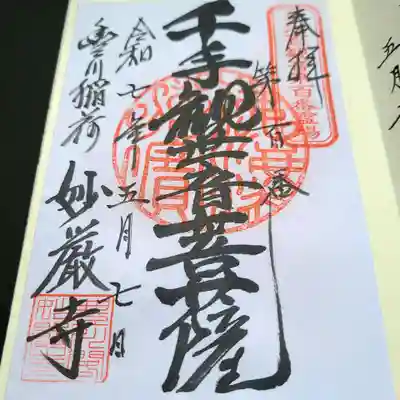 奉拝
第百番
千手観世音菩薩
令和七年五月七日
豊川稲荷
妙厳寺